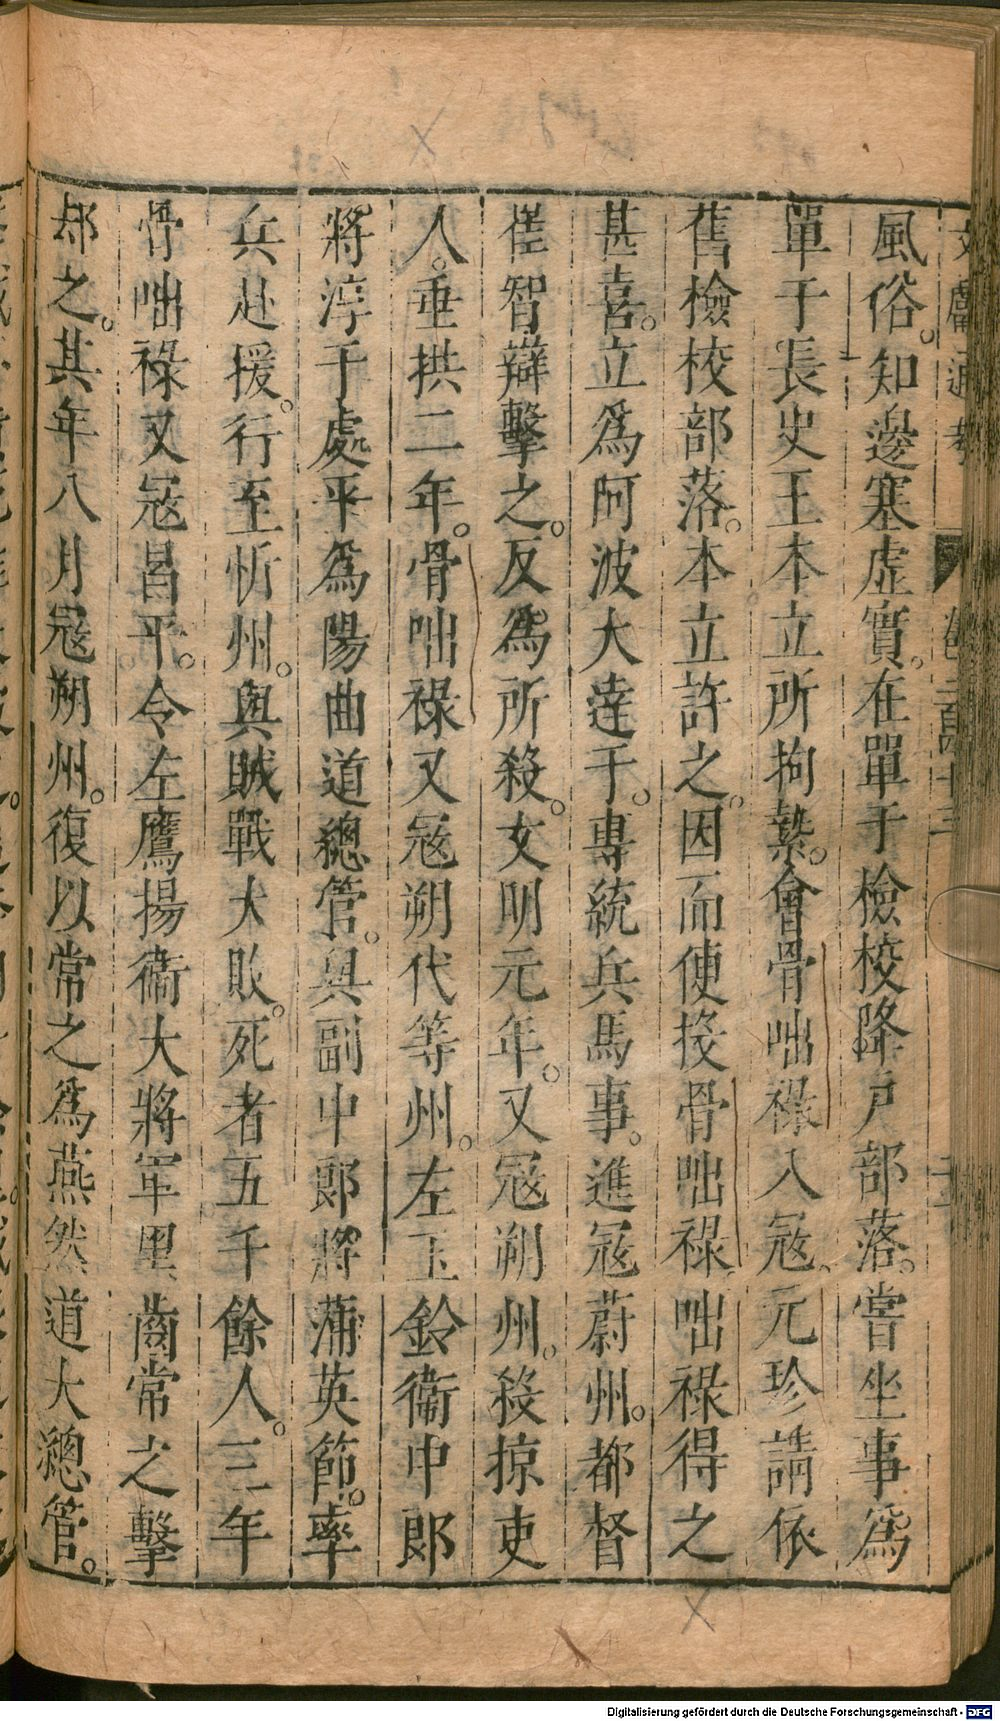 文獻通考
風俗。知邊塞虛實。在單于檢校降戶部落。嘗坐事爲
單于長史王本立所拘縶。會骨咄祿入寇。元珍請依
舊檢校部落。本立許之。因而使投骨咄祿。咄祿得之
甚喜。立爲阿波大達干。專統兵馬事。進寇蔚州。都督
崔智辯擊之。反爲所殺。文明元年。又寇朔州。殺掠吏
人。垂拱二年。骨咄祿又寇朔代等州。左玉鈐衞中郎
將淳于處平爲陽曲道總管。與副中郎將蒲英節。率
兵赴援。行至忻州。與賊戰大敗。死者五千餘人。三年
骨咄祿又寇昌平。令左鷹揚衞大將軍黑齒常之擊
却之。其年八月寇朔州。復以常之爲燕然道大總管。
Digitalisierung gefördert durch die Deutsche Forschungsgemeinschaft - DFG